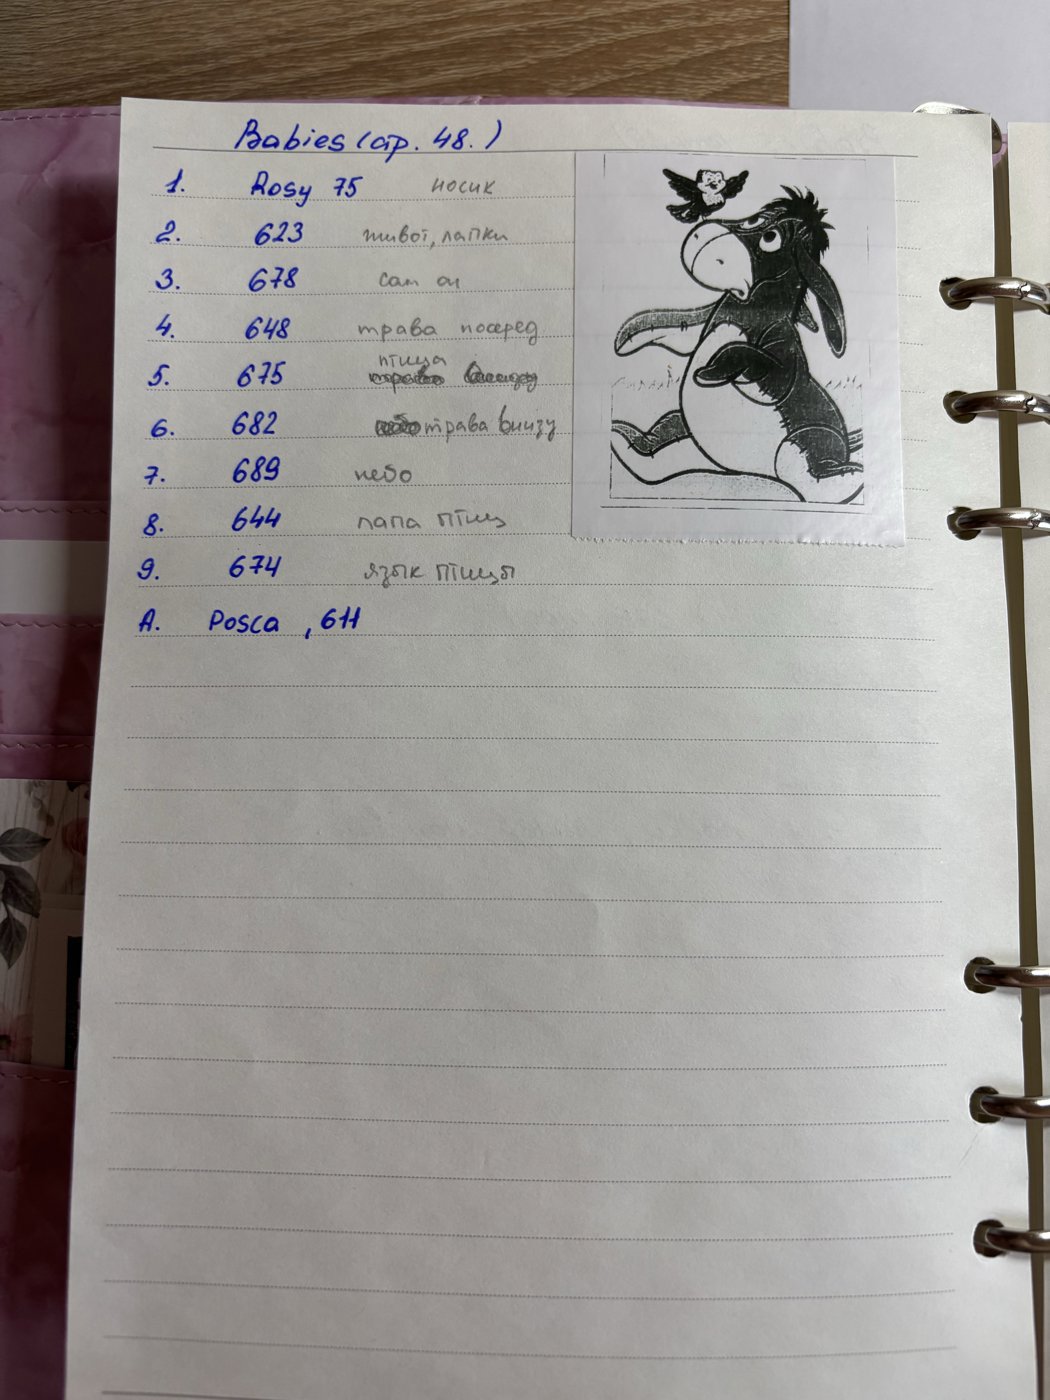 Babies (стр. 48.)
1. Rosy 75 носик
2. 623 живот, лапки
3. 678 сам он
4. 648 трава посеред
птица
5. 675
6. 682 трава внизу
7. 689 небо
8. 644 лапа птиц
9. 674 язык птицы
A. Posca , 611